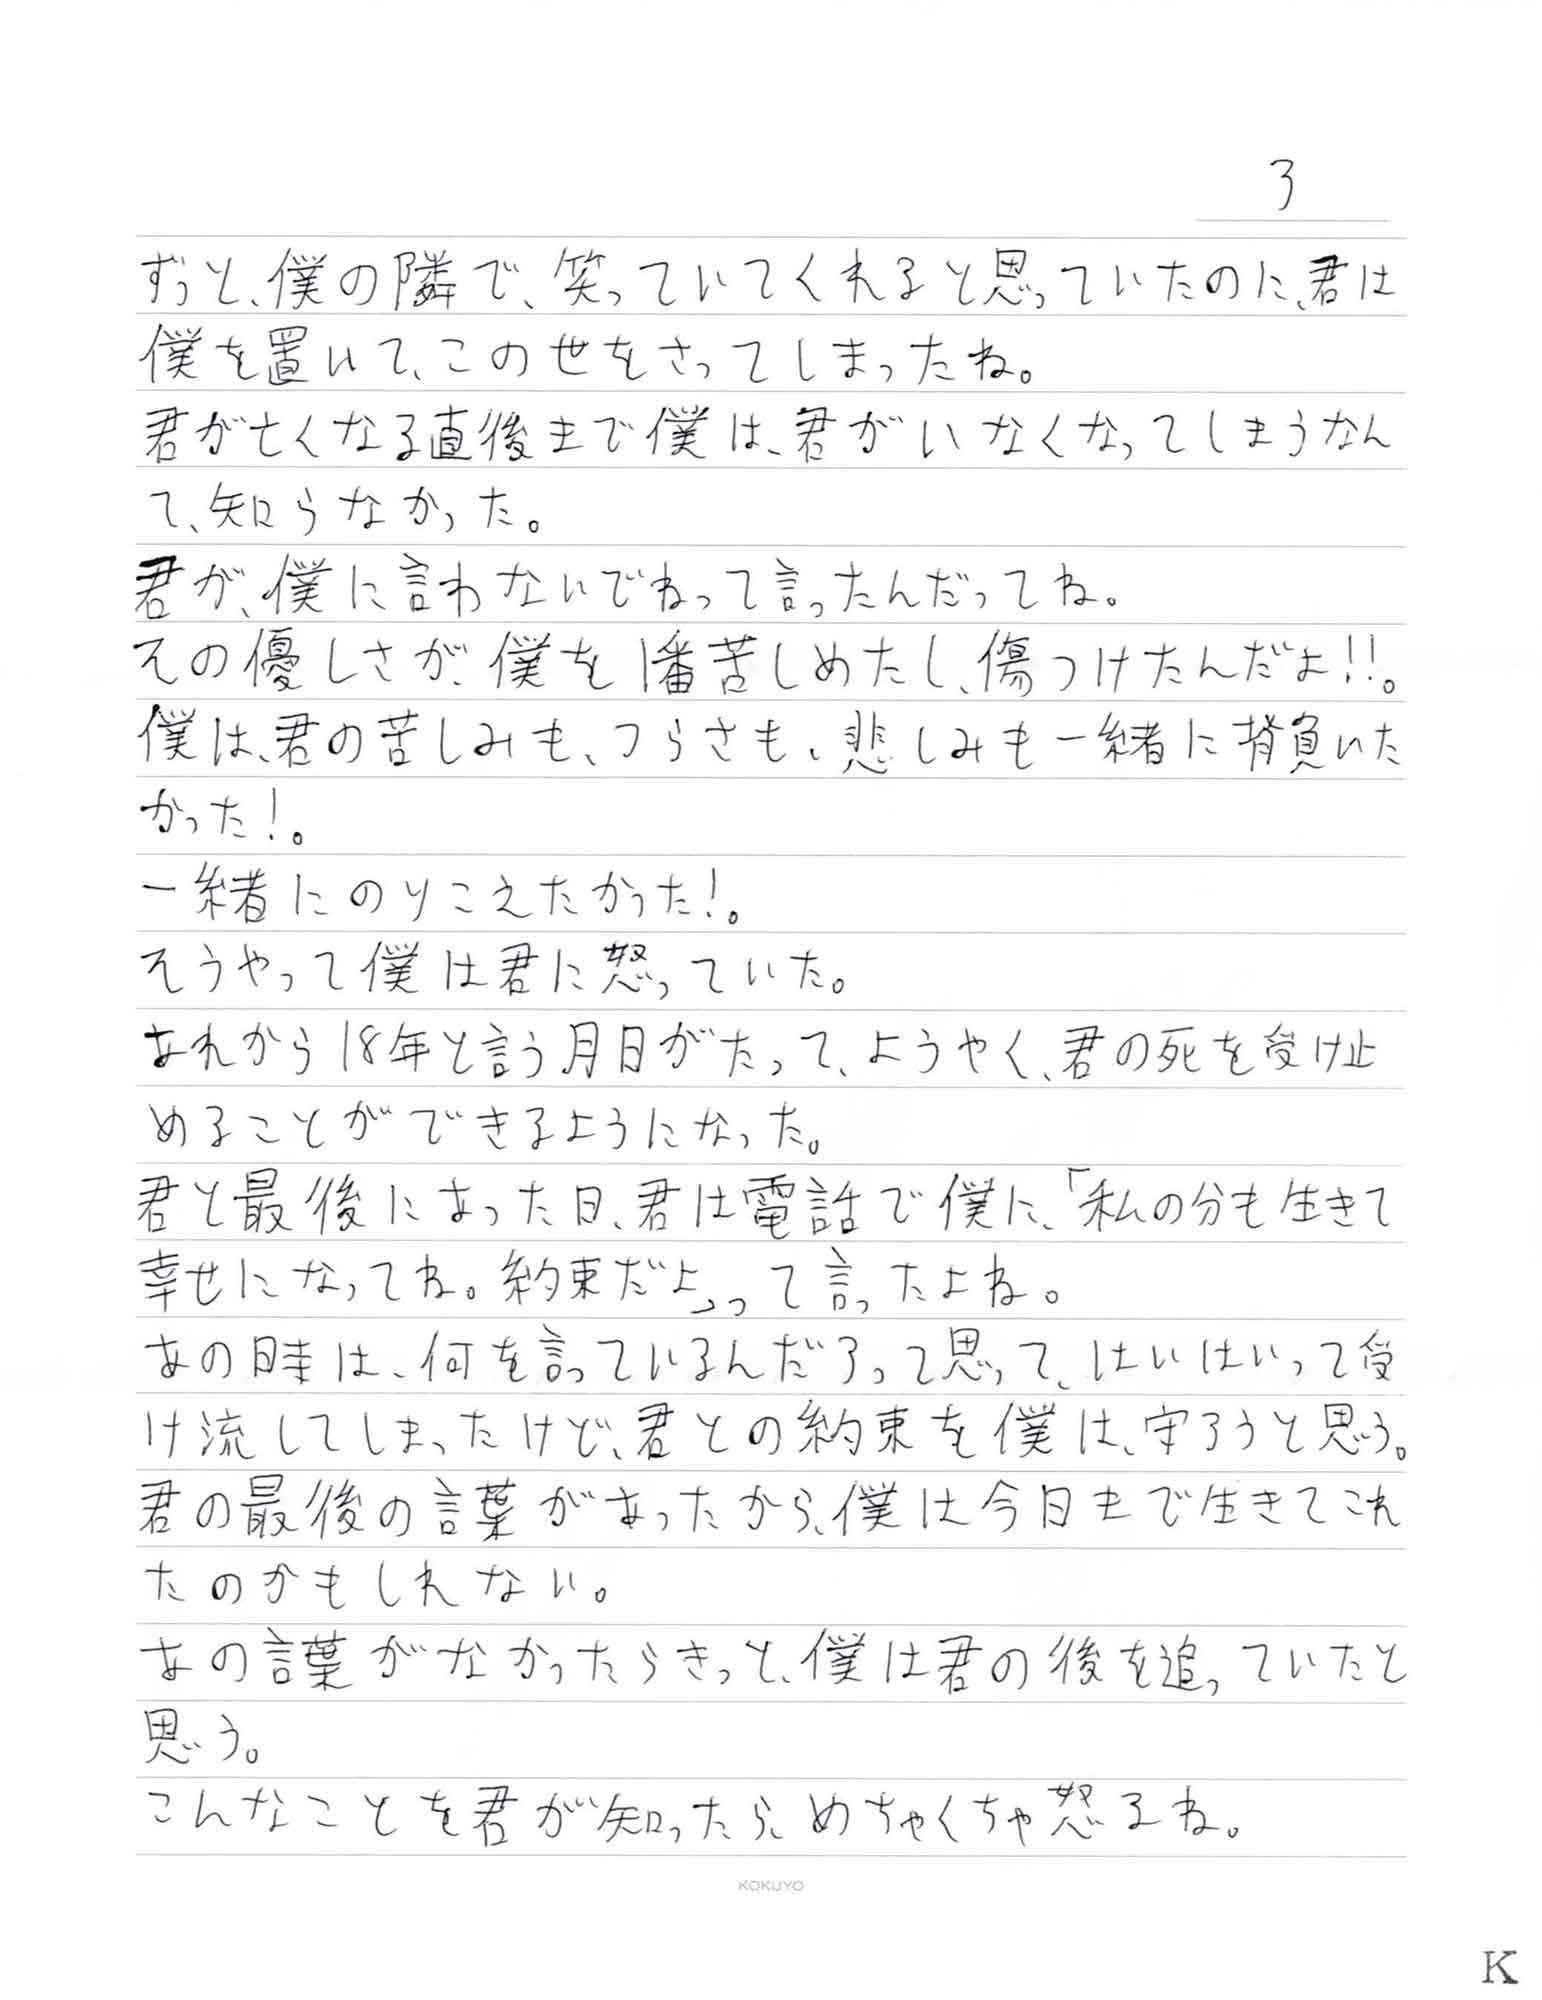 3
ずっと、僕の隣で、笑っていてくれると思っていたのに、君は
僕を置いて、この世をさってしまったね。
君が亡くなる直後まで僕は、君がいなくなってしまうなん
て、知らなかった。
君が、僕に言わないでねって言ったんだってね。
その優しさが、僕を1番苦しめたし、傷つけたんだよ!!。
僕は、君の苦しみも、つらさも、悲しみも一緒に背負いた
かった!。
一緒にのりこえたかった!。
そうやって僕は君に怒っていた。
あれから18年と言う月日がたって、ようやく、君の死を受け止
めることができるようになった。
君と最後にあった日、君は電話で僕に、「私の分も生きて
幸せになってね。約束だよ」って言ったよね。
あの時は、何を言っているんだろって思って、はいはいって受
け流してしまったけど、君との約束を僕は、守ろうと思う。
君の最後の言葉があったから、僕は今日まで生きてこれ
たのかもしれない。
あの言葉がなかったらきっと、僕は君の後を追っていたと
思う。
こんなことを君が知ったら、めちゃくちゃ怒るね。
KOKUYO
K